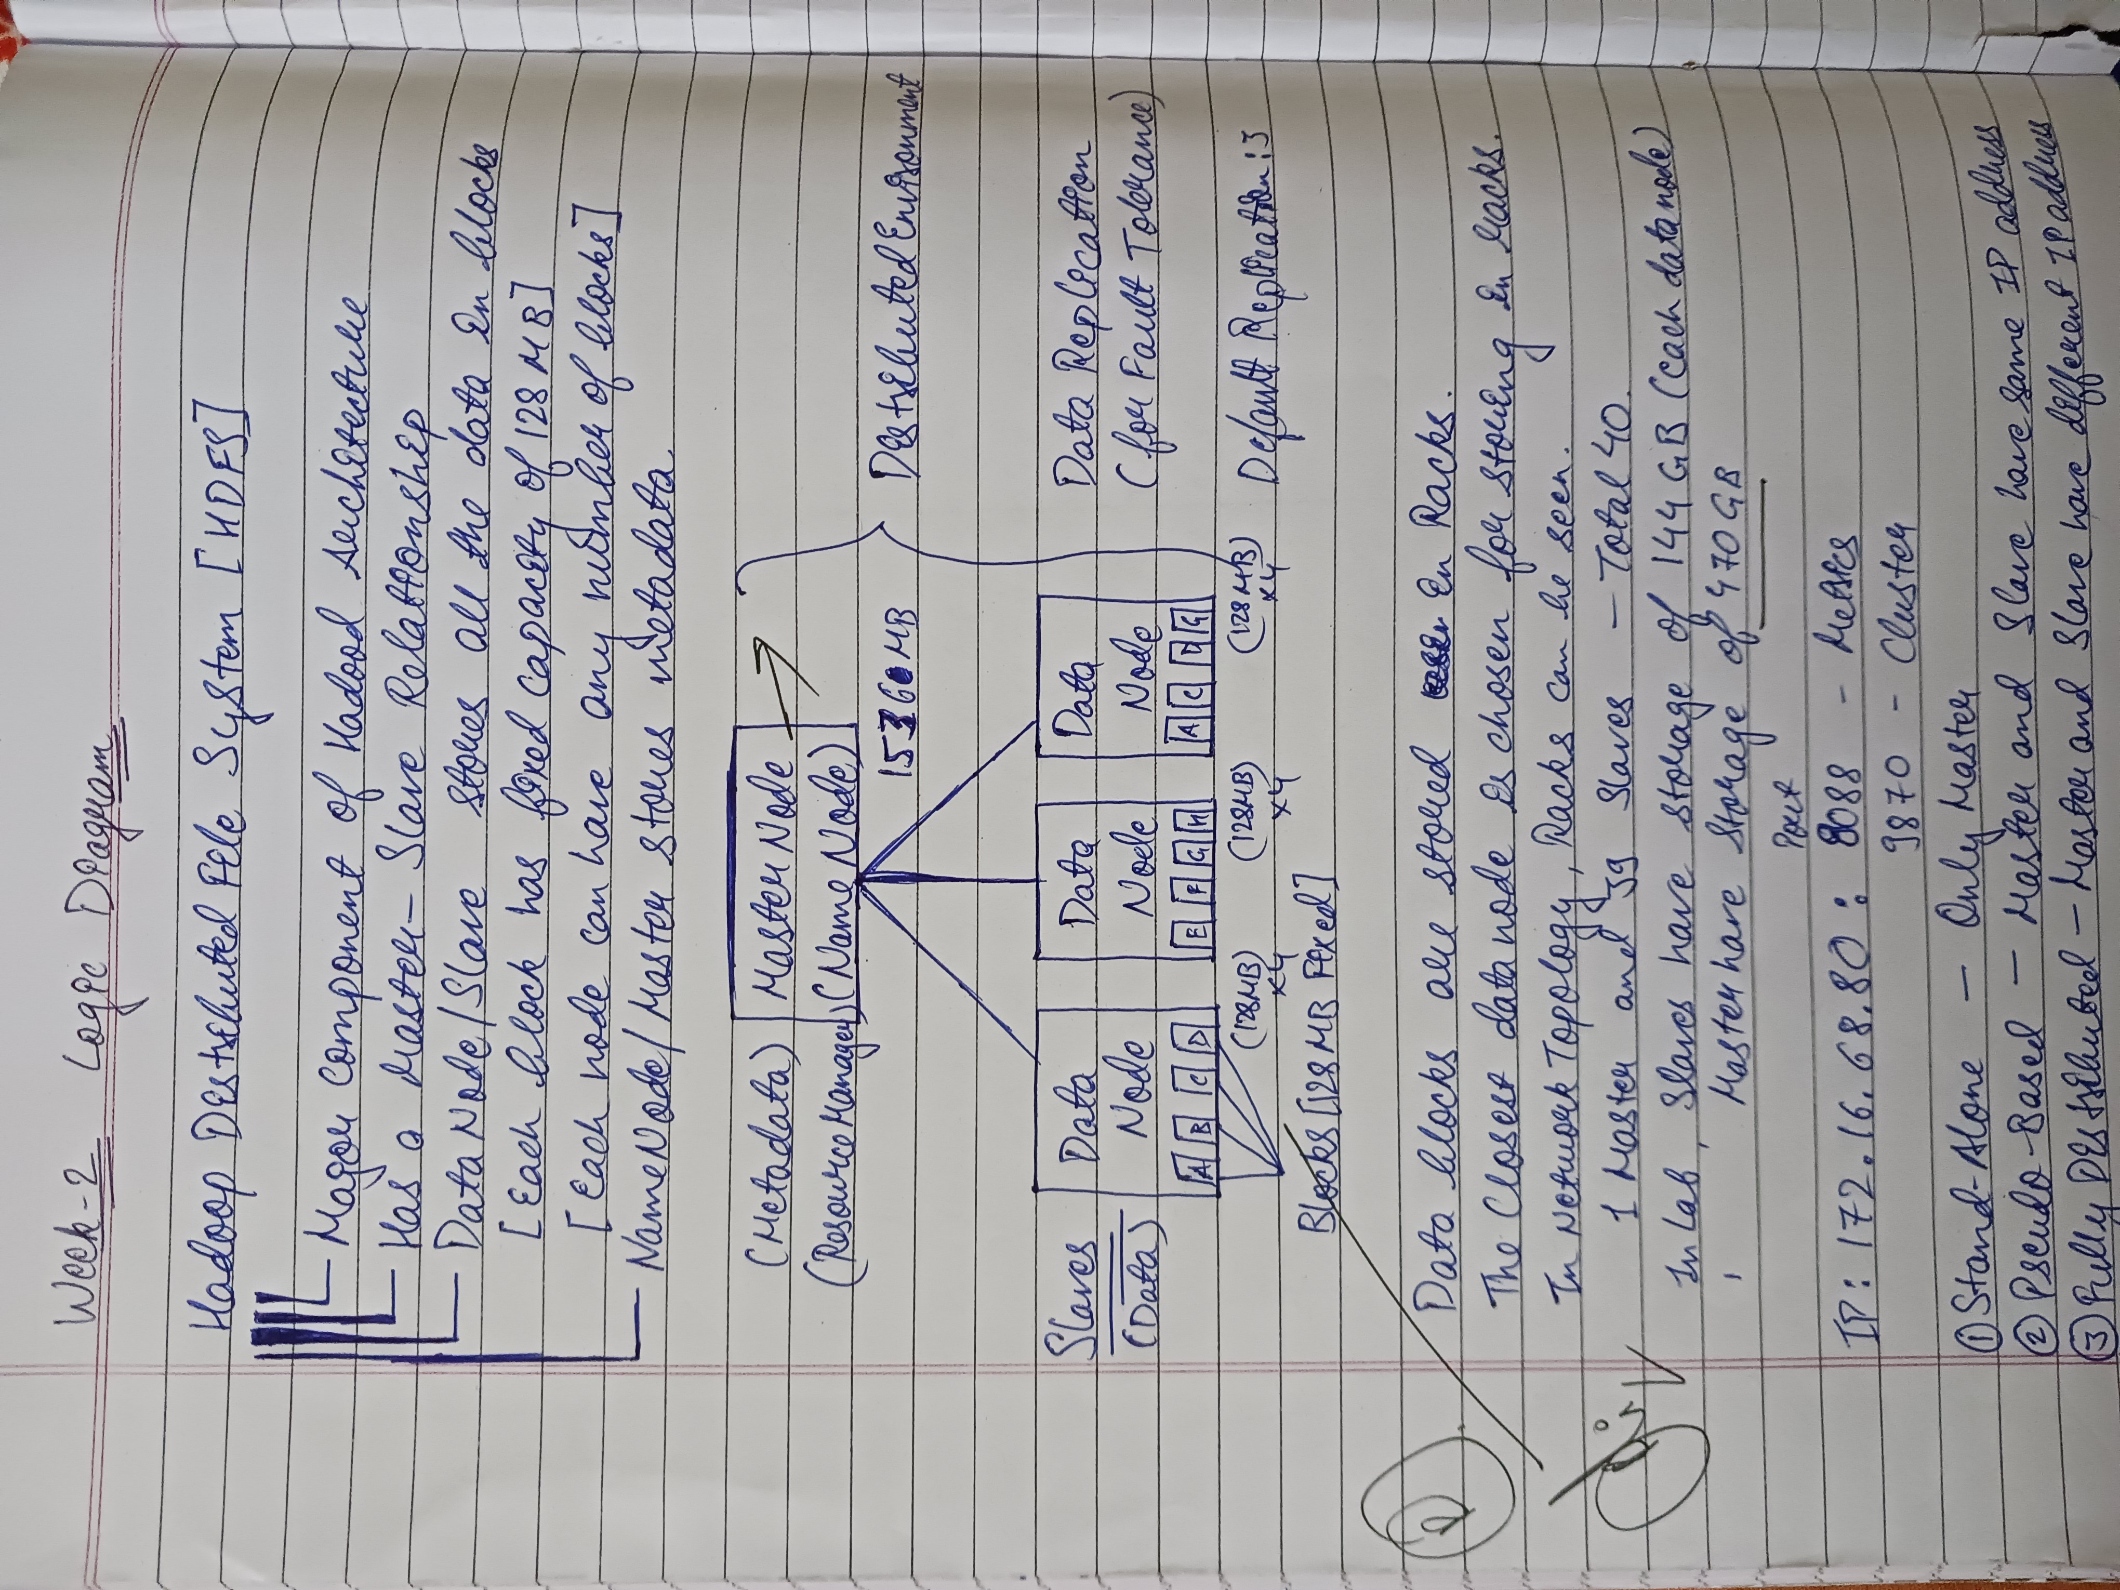 Week-2 Logic Diagram
Hadoop Distributed File System [HDFS]
Magor Component of Hadood Architecture
Has a Master-Slave Relationship
DataNode/Slave stores all the data in blocks
[Each block has fixed capacity of 128 MB]
[Each node can have any number of blocks]
NameNode/Master stores metadata
(Metadata) Master Node
(ResourceManager) (Name Node)
15360 MB Distributed Environment
Slaves Data Data Data Data Replication
(Data) Node Node Node (for Fault Tolerance)
A B C D E F G H A C D G
(128MB) (128MB) (128MB) Default Replication:3
x4 x4 x4
Blocks [128 MB Fixed]
Data blocks are stored in Racks.
The Closest datanode is chosen for storing in racks.
In Network Topology, Racks can be seen.
1 Master and 39 Slaves - Total 40.
In Lab, Slaves have storage of 144 GB (each datanode)
Master have Storage of 470 GB
Port
IP: 172.16.68.80 : 8088 - Metrics
9870 - Cluster
① Stand-Alone - Only Master
② Pseudo-Based - Master and Slave have same IP address
③ Fully Distributed - Master and Slave have different IP address